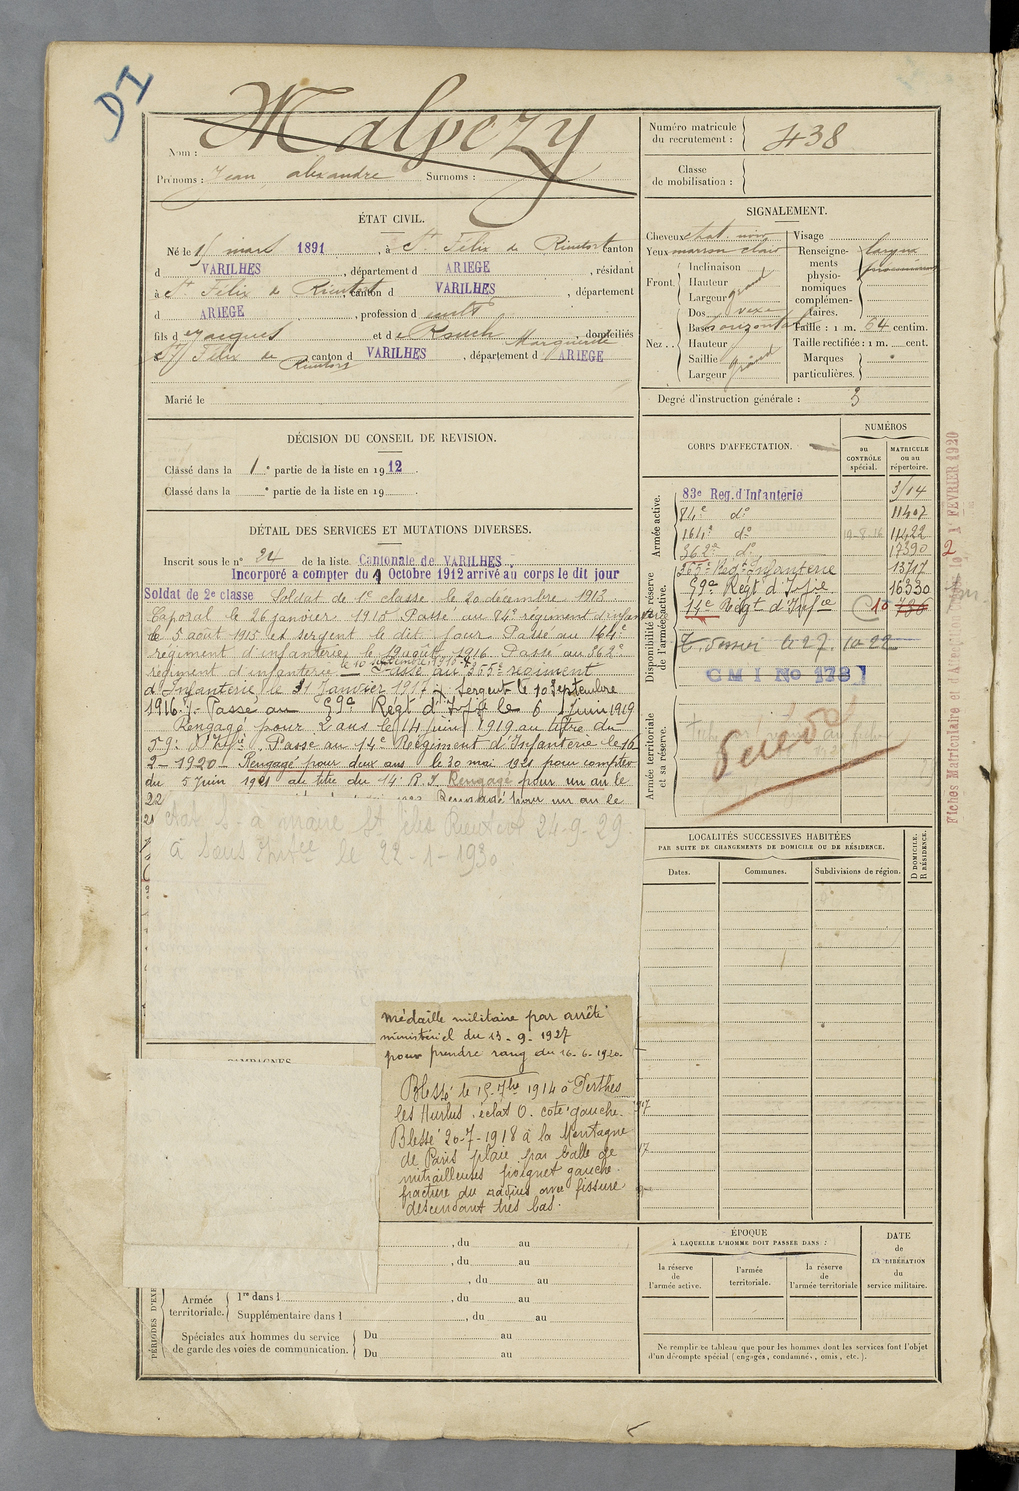 DI
Malpezy
Nom :
Prénoms : Jean alexandre Surnoms :
ÉTAT CIVIL.
Né le 15 mars 1891, à St Félix de Rieutort canton
d VARILHES, département d ARIEGE, résidant
à St Félix de Rieutort, canton d VARILHES, département
d ARIEGE, profession d cultr
fils de Jacques et de Rouch Marguerite, domiciliés
à St Félix de Rieutort canton d VARILHES, département d ARIEGE
Marié le
DÉCISION DU CONSEIL DE REVISION.
Classé dans la 1e partie de la liste en 1912.
Classé dans la e partie de la liste en 19
DÉTAIL DES SERVICES ET MUTATIONS DIVERSES.
Inscrit sous le n° 24 de la liste Cantonale de VARILHES
Incorporé a compter du 9 Octobre 1912 arrivé au corps le dit jour
Soldat de 2e classe Soldat de 1e classe le 20 décembre 1913
Caporal le 26 janvier 1915 Passé au 84e régiment d'infanterie
le 5 août 1915 et sergent le dit jour Passé au 164e
régiment d'infanterie le 19 août 1916 Passé au 362e
régiment d'infanterie le 10 septembre 1916 Passé au 355e régiment
d'Infanterie le 31 Janvier 1917 Sergent le 10 Septembre
1916 Passé au 59e Régt d'Infie le 6 Juin 1919
Rengagé pour 2 ans le 14 juin 1919 au titre du
59e d'Infie. Passé au 14e Régiment d'Infanterie le 16
2-1920. Rengagé pour deux ans le 20 mai 1921 pour compter
du 5 Juin 1921 au titre du 14e R.I. Rengagé pour un an le
22 Rengagé pour un an le
à maire St Félix Rieutort 24-9-29.
à le 22-1-1930
CAMPAGNES
Médaille militaire par arrêté
ministériel du 13-9-1927
pour prendre rang du 16-6-1920.
Blessé le 15-7bre 1914 à Perthes
les Hurlus, éclat O. coté gauche.
Blessé 20-7-1918 à la Montagne
de Paris plaie par balle de
mitrailleuses poignet gauche.
fracture du radius avec fissure
descendant très bas.
, du au
, du au
, du au
PÉRIODES D'EXE
Armée territoriale. 1re dans l , du au
Supplémentaire dans l , du au
Spéciales aux hommes du service Du au
de garde des voies de communication. Du au
Numéro matricule
du recrutement : 438
Classe
de mobilisation :
SIGNALEMENT.
Cheveux chat. noir Visage
Yeux marron clair Renseigne-
ments
physio-
nomiques
complémen-
taires.
Front Inclinaison
Hauteur
Largeur grand
Nez Dos vexe
Base horizontal Taille : 1 m. 64 centim.
Hauteur Taille rectifiée : 1 m. cent.
Saillie grand Marques
Largeur particulières.
Degré d'instruction générale : 3
CORPS D'AFFECTATION.
NUMÉROS
au CONTRÔLE spécial.
MATRICULE ou au répertoire.
Armée active.
83e Reg. d'Infanterie 3/14
84e do 11407
164e do 19-8-16 11422
362e do 17390
355e Regt Infanterie 13717
Disponibilité et réserve de l'armée active.
59e Régt d'Infie 16330
14e Régt d'Infie
le 27.10.22
G M I No 178
Armée territoriale et sa réserve.
Fiches Matriculaire et d'Affectation 1 FEVRIER 1920
LOCALITÉS SUCCESSIVES HABITÉES
PAR SUITE DE CHANGEMENTS DE DOMICILE OU DE RÉSIDENCE.
Dates. Communes. Subdivisions de région. D DOMICILE. R RÉSIDENCE.
ÉPOQUE
À LAQUELLE L'HOMME DOIT PASSER DANS :
la réserve de l'armée active. l'armée territoriale. la réserve de l'armée territoriale
DATE de LA LIBÉRATION du service militaire.
Ne remplir ce tableau que pour les hommes dont les services font l'objet
d'un décompte spécial (engagés, condamnés, omis, etc.).